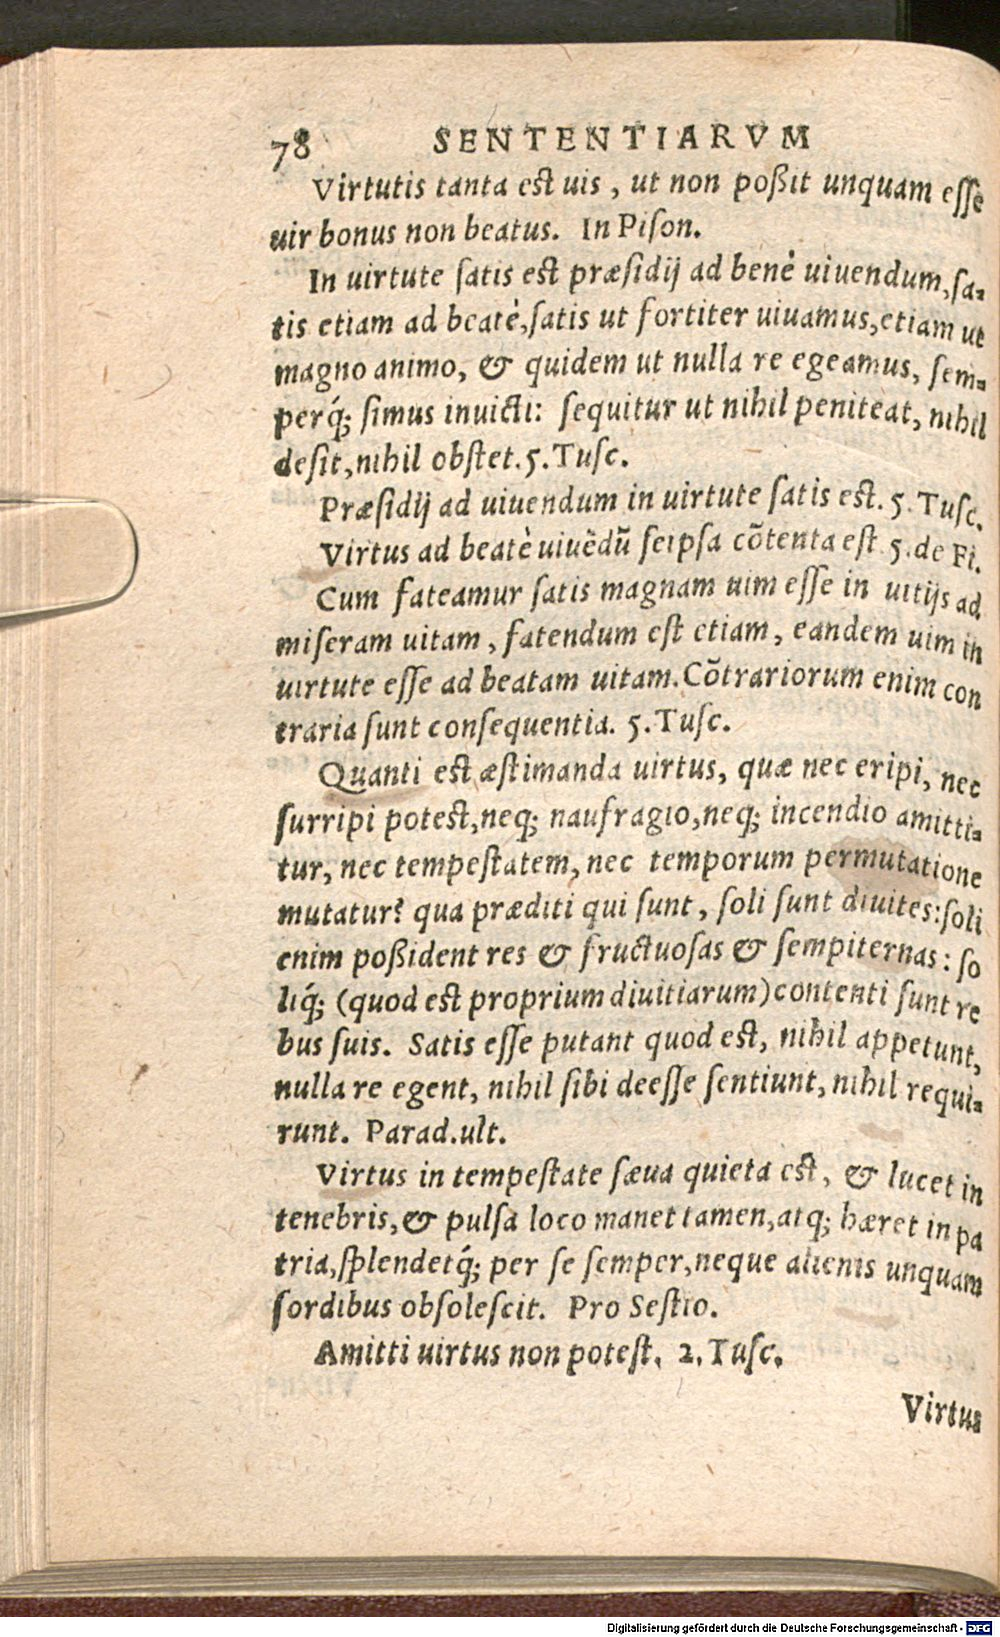 78 SENTENTIARVM
Virtutis tanta est uis, ut non poßit unquam esse
uir bonus non beatus. In Pison.
In uirtute satis est præsidij ad benè uiuendum, sa-
tis etiam ad beatè, satis ut fortiter uiuamus, etiam ut
magno animo, & quidem ut nulla re egeamus, sem-
perq́; simus inuicti: sequitur ut nihil peniteat, nihil
desit, nihil obstet. 5. Tusc.
Præsidij ad uiuendum in uirtute satis est. 5. Tusc.
Virtus ad beatè uiuẽdũ seipsa cõtenta est 5. de Fi.
Cum fateamur satis magnam uim esse in uitijs ad
miseram uitam, fatendum est etiam, eandem uim in
uirtute esse ad beatam uitam. Cõtrariorum enim con
traria sunt consequentia. 5. Tusc.
Quanti est æstimanda uirtus, quæ nec eripi, nec
surripi potest, neq; naufragio, neq; incendio amitti-
tur, nec tempestatem, nec temporum permutatione
mutatur? qua præditi qui sunt, soli sunt diuites: soli
enim poßident res & fructuosas & sempiternas: so
liq́; (quod est proprium diuitiarum) contenti sunt re
bus suis. Satis esse putant quod est, nihil appetunt,
nulla re egent, nihil sibi deesse sentiunt, nihil requi-
runt. Parad. ult.
Virtus in tempestate sæua quieta est, & lucet in
tenebris, & pulsa loco manet tamen, atq; hæret in pa
tria, splendetq́; per se semper, neque alienis unquam
sordibus obsolescit. Pro Sestio.
Amitti uirtus non potest. 2. Tusc.
Virtus
Digitalisierung gefördert durch die Deutsche Forschungsgemeinschaft - DFG